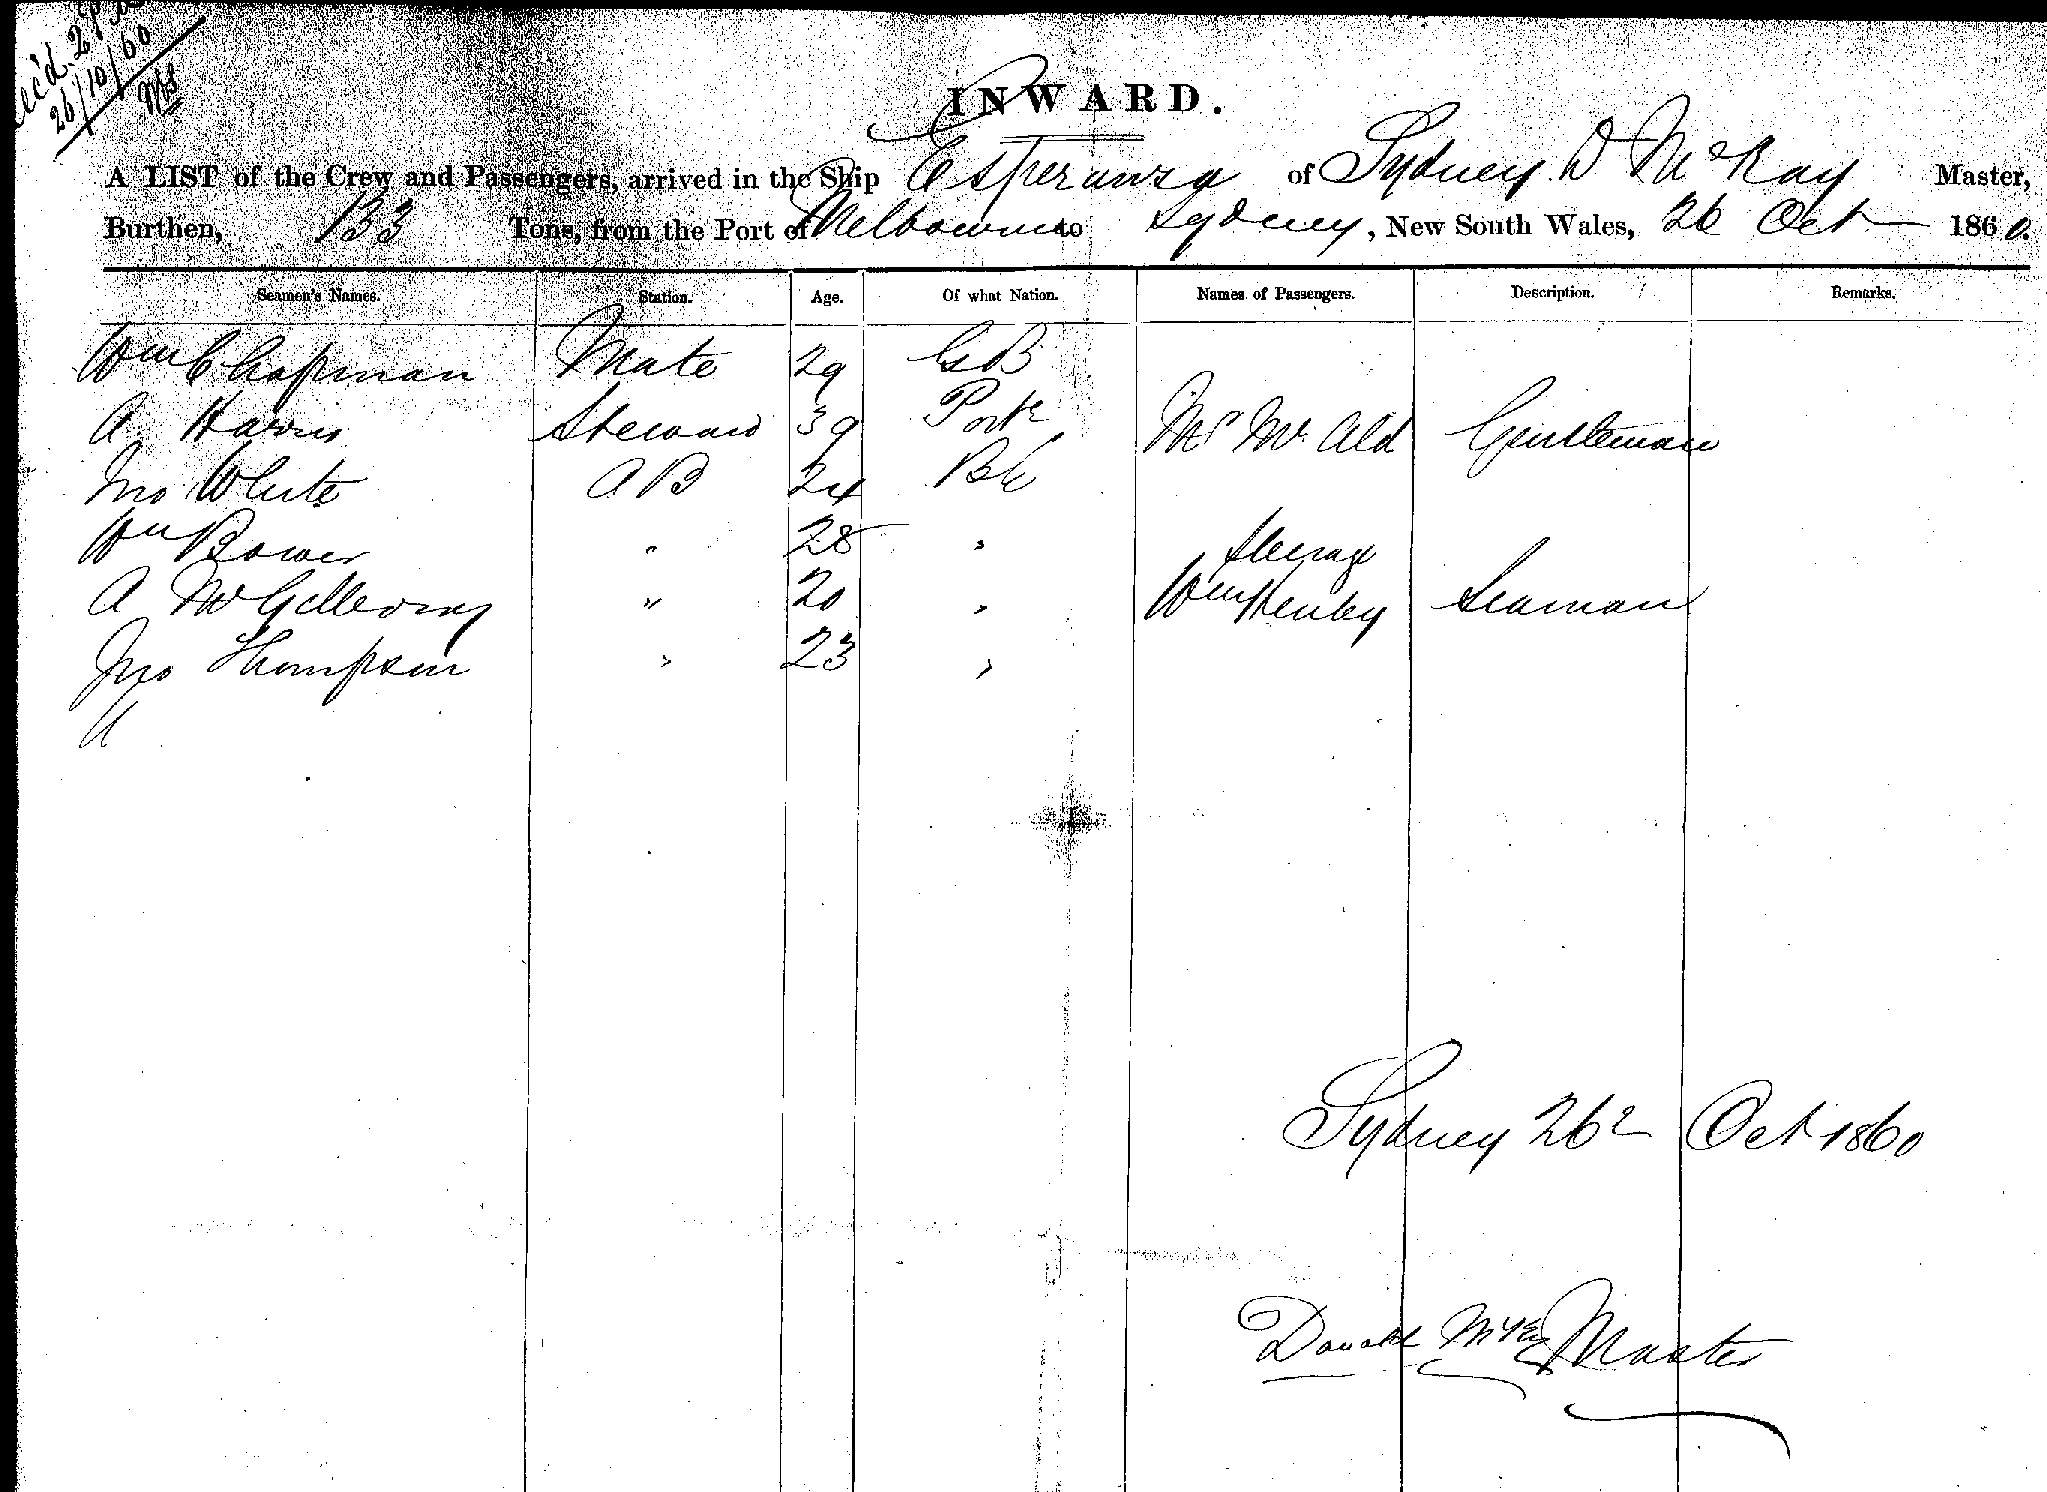 26/10/60
INWARD.
A LIST of the Crew and Passengers, arrived in the Ship Esperanza of Sydney D McKay Master,
Burthen, 133 Tons, from the Port of Melbourne to Sydney, New South Wales, 26 Oct 1860.
Seamen's Names. Station. Age. Of what Nation. Names of Passengers. Description. Remarks.
Wm Chapman Mate 29 GB
A Harris Steward 39 Mr Mc Ald Gentleman
Jno White AB 24
Wm Bower " 28 " Steerage
A " 20 " Wm Henby Seaman
Jno Thompson " 23 "
Sydney 26 Oct 1860
Donald Master